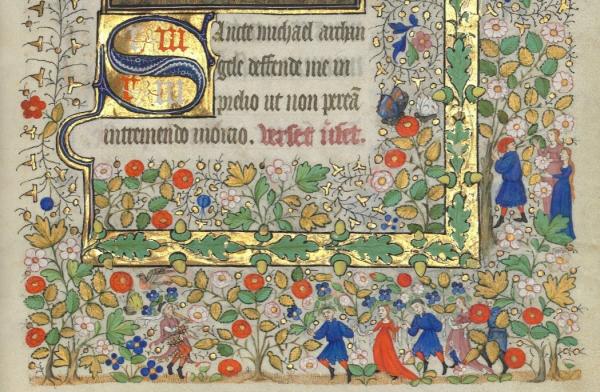 Sancte michael archan
gele deffende me in
prelio ut non pereã
intremendo iudicio. verset